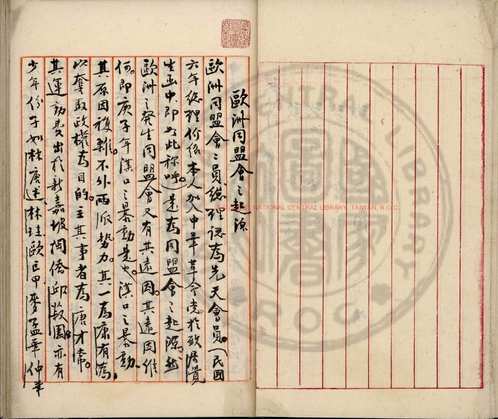 歐洲同盟會之起源
歐洲同盟會之會員總理認為先天會員(民國
六年總理介紹本人加入中華革命黨於政治貴
生函中即如此稱呼)是為同盟會之起源然
歐洲之發生同盟會又有其遠因其遠因維
何即庚子年漢口之暴動是也漢口之暴動
其原因複雜不外兩派勢力其一為康有為
以奪取政權為目的主其事者為唐才常
其運動費出於新嘉坡閩僑邱菽園亦有
少年份子如林庚述林圭歐巨甲麥孟華仲華
NATIONAL CENTRAL LIBRARY, TAIWAN, R.O.C.